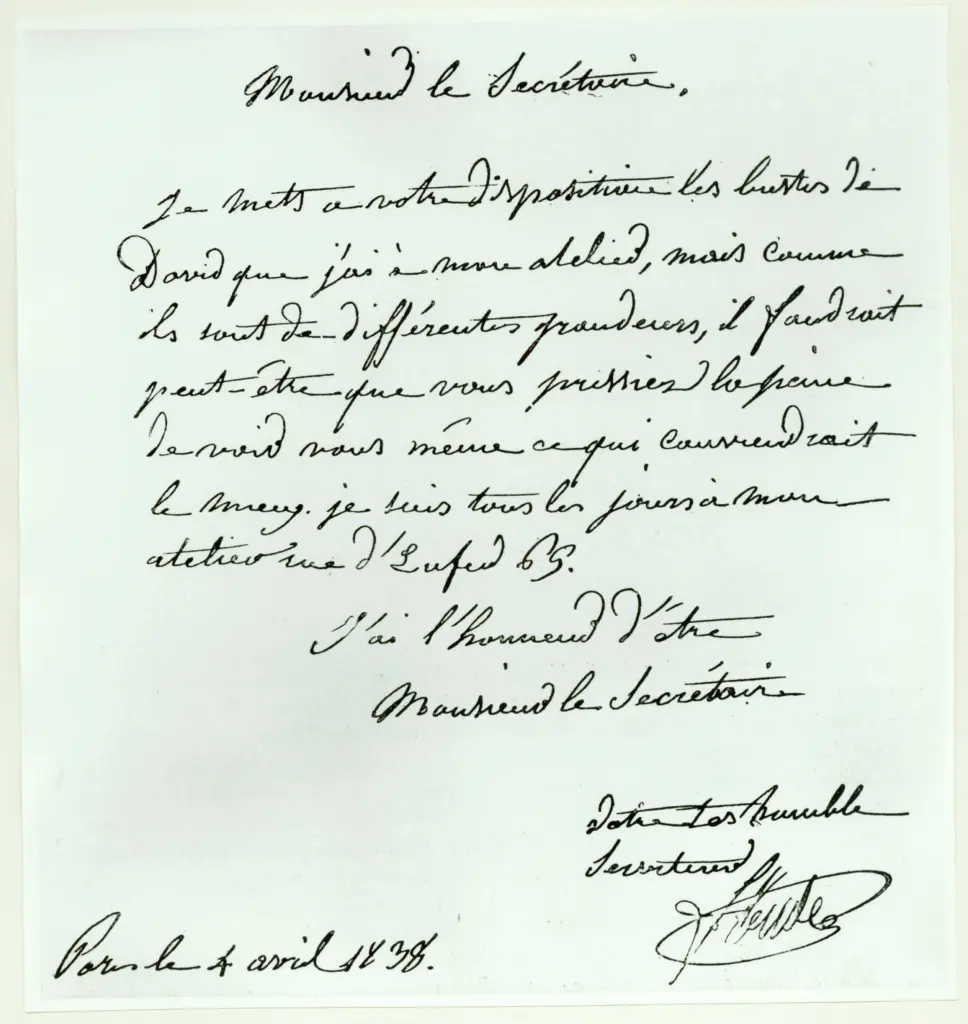 Monsieur le Secrétaire.
Je mets a votre disposition les bustes de
David que j'ai à mon atelier, mais comme
ils sont de différentes grandeurs, il faudrait
peut-être que vous prissiez la peine
de voir vous même ce qui conviendrait
le mieux. je suis tous les jours à mon
atelier rue d'Enfer 65.
J'ai l'honneur d'être
Monsieur le Secrétaire
Votre très humble
Serviteur
F Rude
Paris le 4 avril 1838.